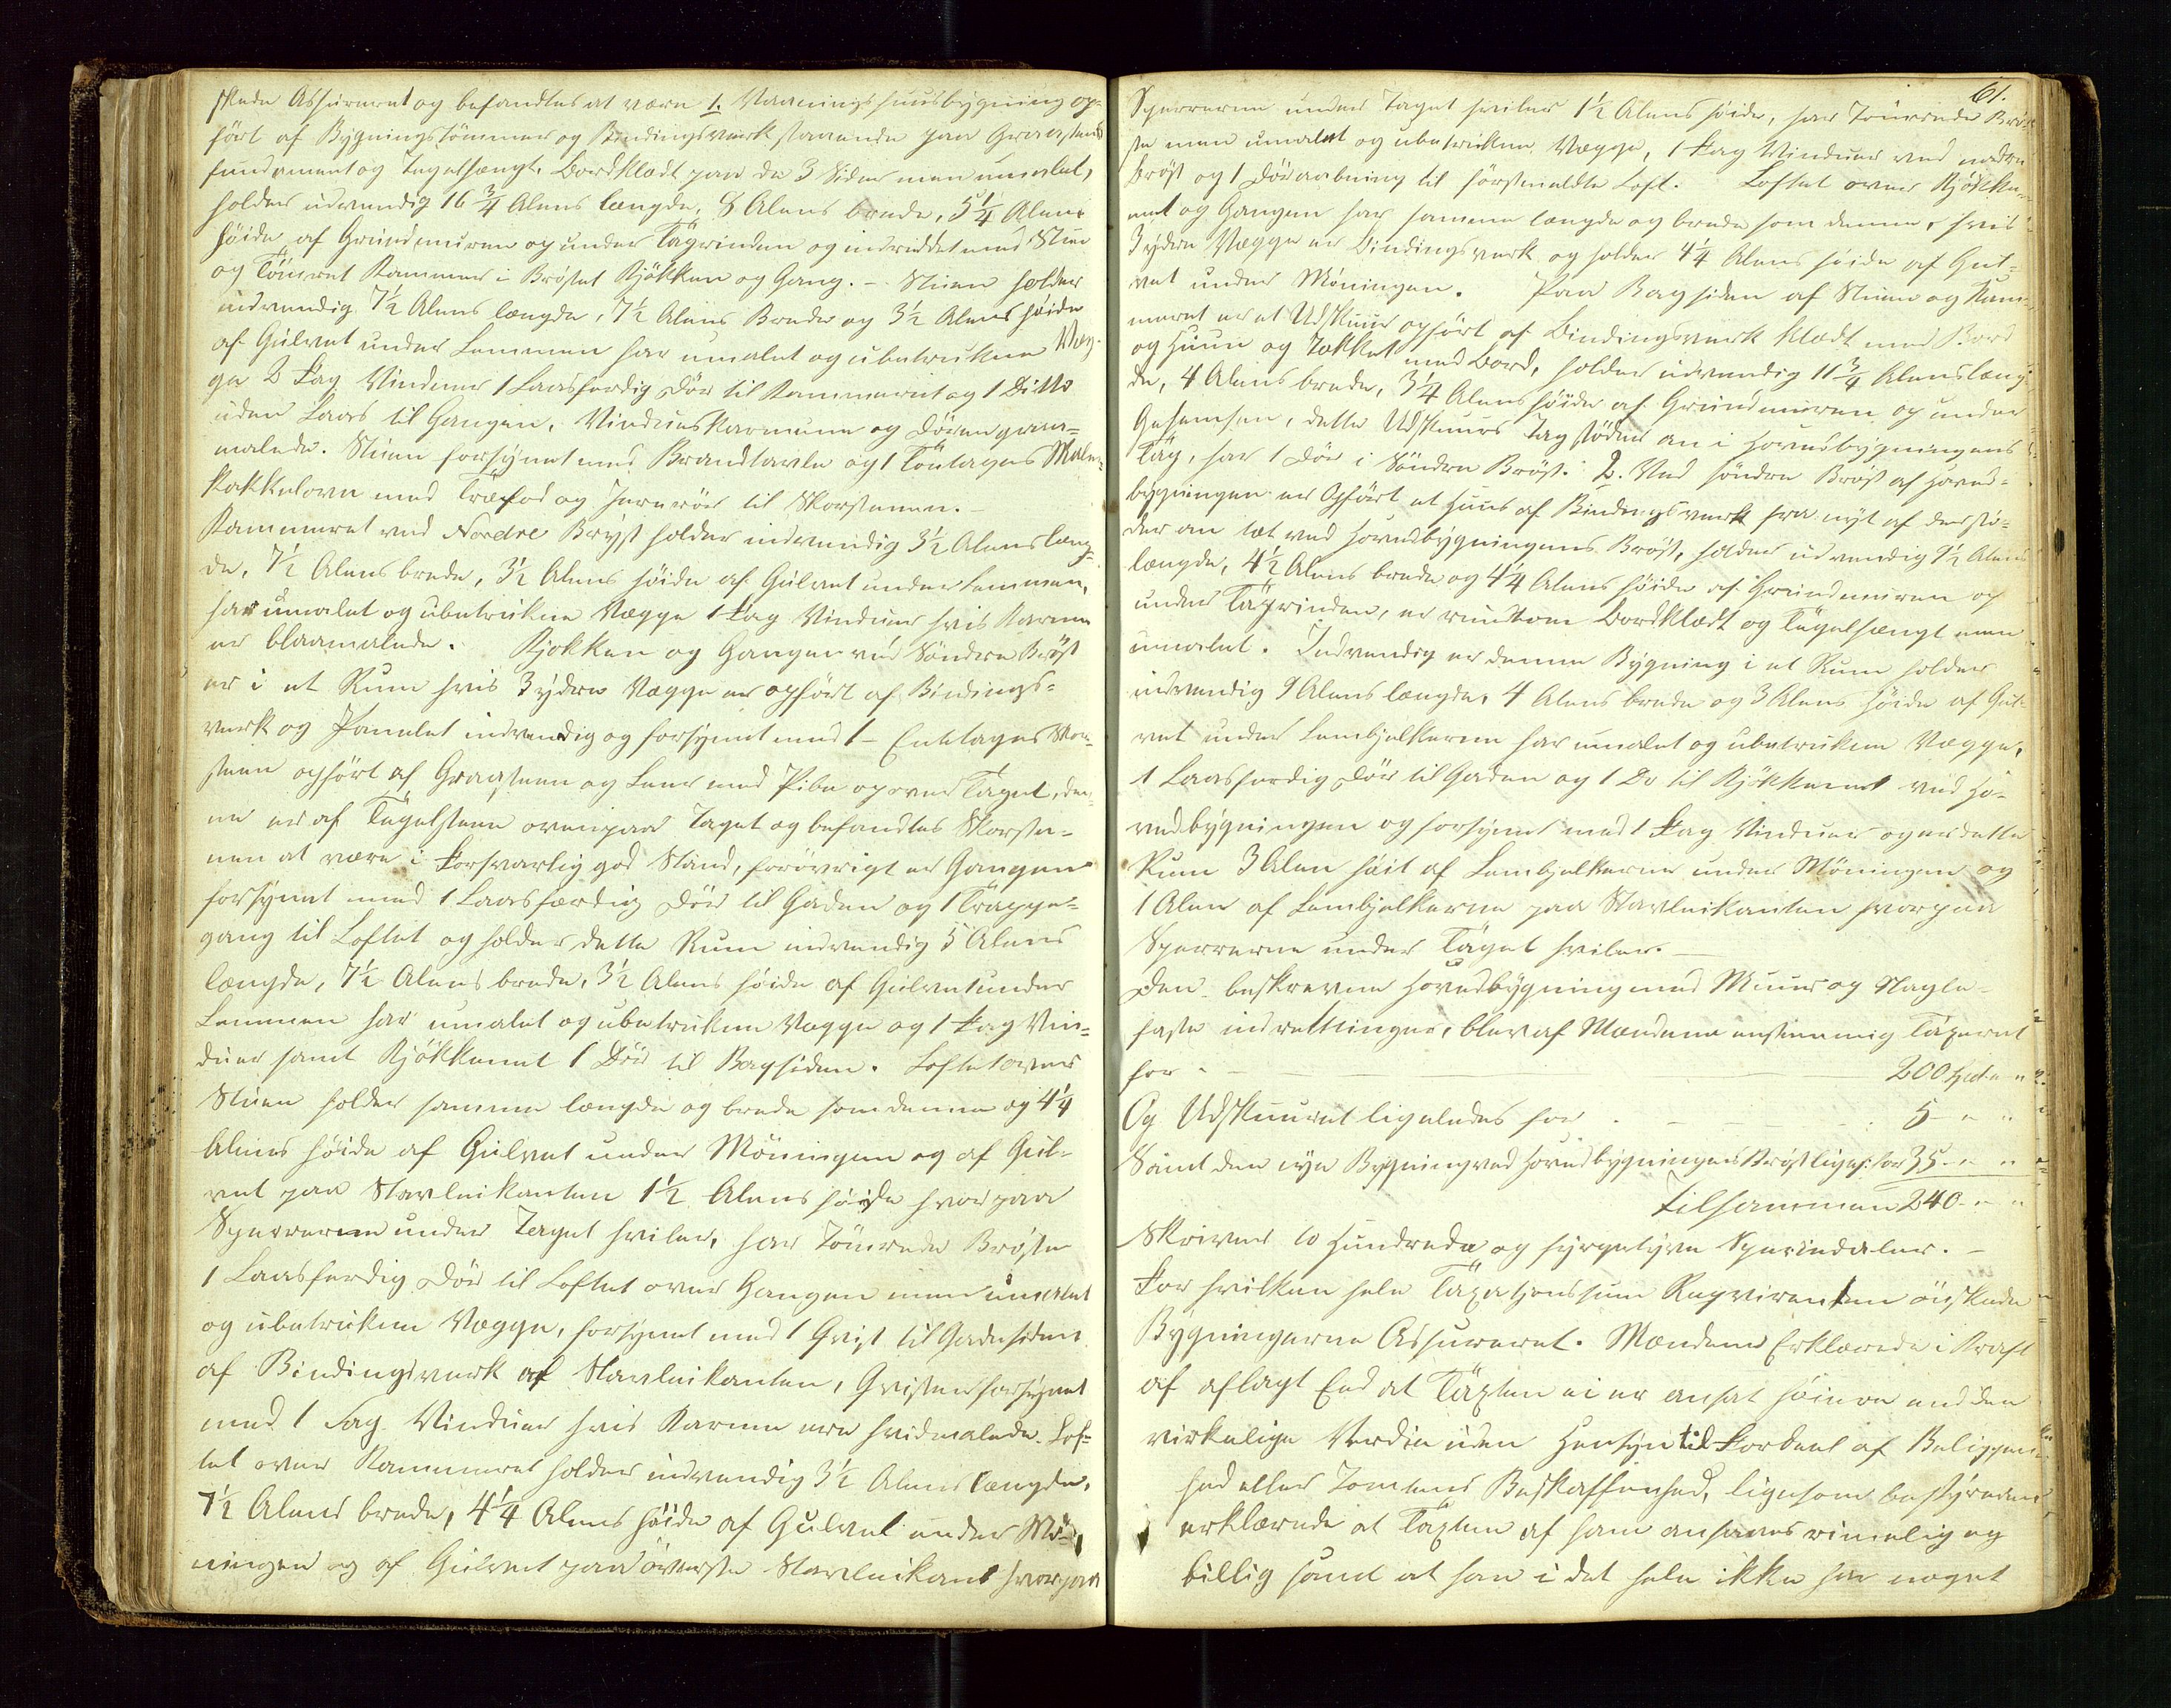 skede Assureret og befandtes at være 1. Vaaningshuusbygning op-
ført af Bygningstömmer og Bindingsverk staaende paa Graasteens
fundament og Tegelhængt. Bordklædt paa de 3 Sider men umalet,
holder udvendig 16 3/4 Alens længde, 8 Alens brede, 5 1/4 Alens
höide af Grundmuren op under Tagrinden og indreddet med Stue
og Tömret Kammer i Bröstet Kjökken og Gang. - Stuen holder
indvendig 7 1/2 Alens længde, 7 1/2 Alens Brede og 3 1/2 Alens höide
af Gulvet under Lemmen har umalet og ubetrukne Væg-
ge 2 Fag Vinduer 1 Laasferdig Dör til Kammeret og 1 Ditto
uden Laas til Gangen. Vindueskarmene og Dören graa-
malede. Stuen forsynet med Brandtavle og 1 Toetages
Kakkelovn med Træfod og Jernrör til Skorstenen. -
Kammeret ved Nordre Bryst holder indvendig 3 1/2 Alens læng-
de, 7 1/2 Alens brede, 3 1/2 Alens höide af Gulvet under Lemmen,
har umalet og ubetrukne Vægge 1 Fag Vinduer hvis Karme
er blaamalede. Kjökken og Gangen ved Söndre Bröst
er i et Rum hvis 3 ydre Vægge er opfört af Bindings-
verk og Panelet indvendig og forsynet med 1 - Enetages Skor-
steen opfört af Graasteen og Leer med Pibe op over Taget, den-
ne er af Tegelsteen ovenpaa Taget og befandtes Skorste-
nen at være i Forsvarlig god Stand, forövrigt er Gangen
forsynet med 1 Laasfærdig Dör til Gaden og 1 Trappe-
gang til Loftet og holder dette Rum indvendig 5 Alens
længde, 7 1/2 Alens brede, 3 1/2 Alens höide af Gulvet under
Lemmen har umalet og ubetrukne Vægge og 1 Fag Vin-
duer samt Kjökkenet 1 Dör til Bagsiden. Loftet over
Stuen holder samme længde og brede som denne og 4 1/4
Alens höide af Gulvet under Möningen og af Gul-
vet paa Stavleikanten 1 1/2 Alens höide hvorpaa
Sperrerne under Taget hviler, har Tömrede Bröste
1 Laasferdig Dör til Loftet over Gangen men umalet
og ubetrukne Vægge, forsynet med 1 Qvist til Gadesiden
af Bindingsverk af Stavleikanten, Qvisten forsynet
med 1 Fag Vinduer hvis Karme ere hvidmalede. Lof-
tet over Kammeret holder indvendig 3 1/2 Alens længde,
7 1/2 Alens brede, 4 1/4 Alens höide af Gulvet under Mö-
ningen og af Gulvet paa överste Stavleikant hvorpaa
61.
Sperrerne under Taget hviler 1 1/2 Alens höide, har Tömrede Brö-
ste men umalet og ubetrukne Vægge, 1 Fag Vinduer ved nordre
Bröst og 1 Döraabning til förstmeldte Loft. Loftet over Kjökke-
net og Gangen har samme længde og brede som denne, hvis
3 ydre Vægge er Bindingsverk og holder 4 1/4 Alens höide af Gul-
vet under Möningen. Paa Bagsiden af Stuen og Kam-
meret er et Udskuur opfört af Bindingsverk klædt med Bord
og Huun og Tækket med Bord, holder udvendig 11 3/4 Alens læng-
de, 4 Alens brede, 3 1/4 Alens höide af Grundmuren op under
Gesemsen, dette Udskuurs Tag stöder an i Hovedbygningens
Tag, har 1 Dör i Söndre Bröst. 2. Ved söndre Bröst af Hoved-
bygningen er Opfört et Huus af Bindingsverk fra nyt af der stö-
der an tæt ved Hovedbygningens Bröst, holder udvendig 9 1/2 Alens
længde, 4 1/2 Alens brede og 4 1/4 Alens höide af Grundmuren op
under Tagrinden, er rundtom Bordklædt og Tegelhængt men
umalet. Indvendig er denne Bygning i et Rum holder
indvendig 9 Alens længde, 4 Alens brede og 3 Alens höide af Gul-
vet under Lembjelkerne har umalet og ubetrukne Vægge,
1 Laasferdig Dör til Gaden og 1 Do til Kjökkenet ved Ho-
vedbygningen og forsynet med 1 Fag Vinduer og er dette
Rum 3 Alen höit af Lembjelkerne under Möningen og
1 Alen af Lembjelkerne paa Stavleikanten hvorpaa
Sperrerne under Taget hviler. -
Den beskrevne Hovedbygning med Muur og Nagle-
faste indrettninger, blev af Mændene enstemmig Taxeret
for - - - - 200 Spd " "
Og Udskuuret ligeledes for - - - - 5 - " "
Samt den nye Bygning ved Hovedbygningens Bröst liges: for 35 - " "
Tilsammen 240 - " "
Skriver to Hundrede og fyrgetyve Speciedaler. -
For hvilken hele Taxationssum Reqvirenten önskede
Bygningerne Assureret. Mændene Erklærede i Kraft
af aflagt Eed at Taxten ei er ansat höiere end den
virkelige Verdie uden Hensyn til Fordeel af Beliggen-
hed eller Tomtens Beskaffenhed, ligesom bestyreren
erklærede at Taxten af ham ansaaes rimelig og
billig samt at han i det hele ikke har noget